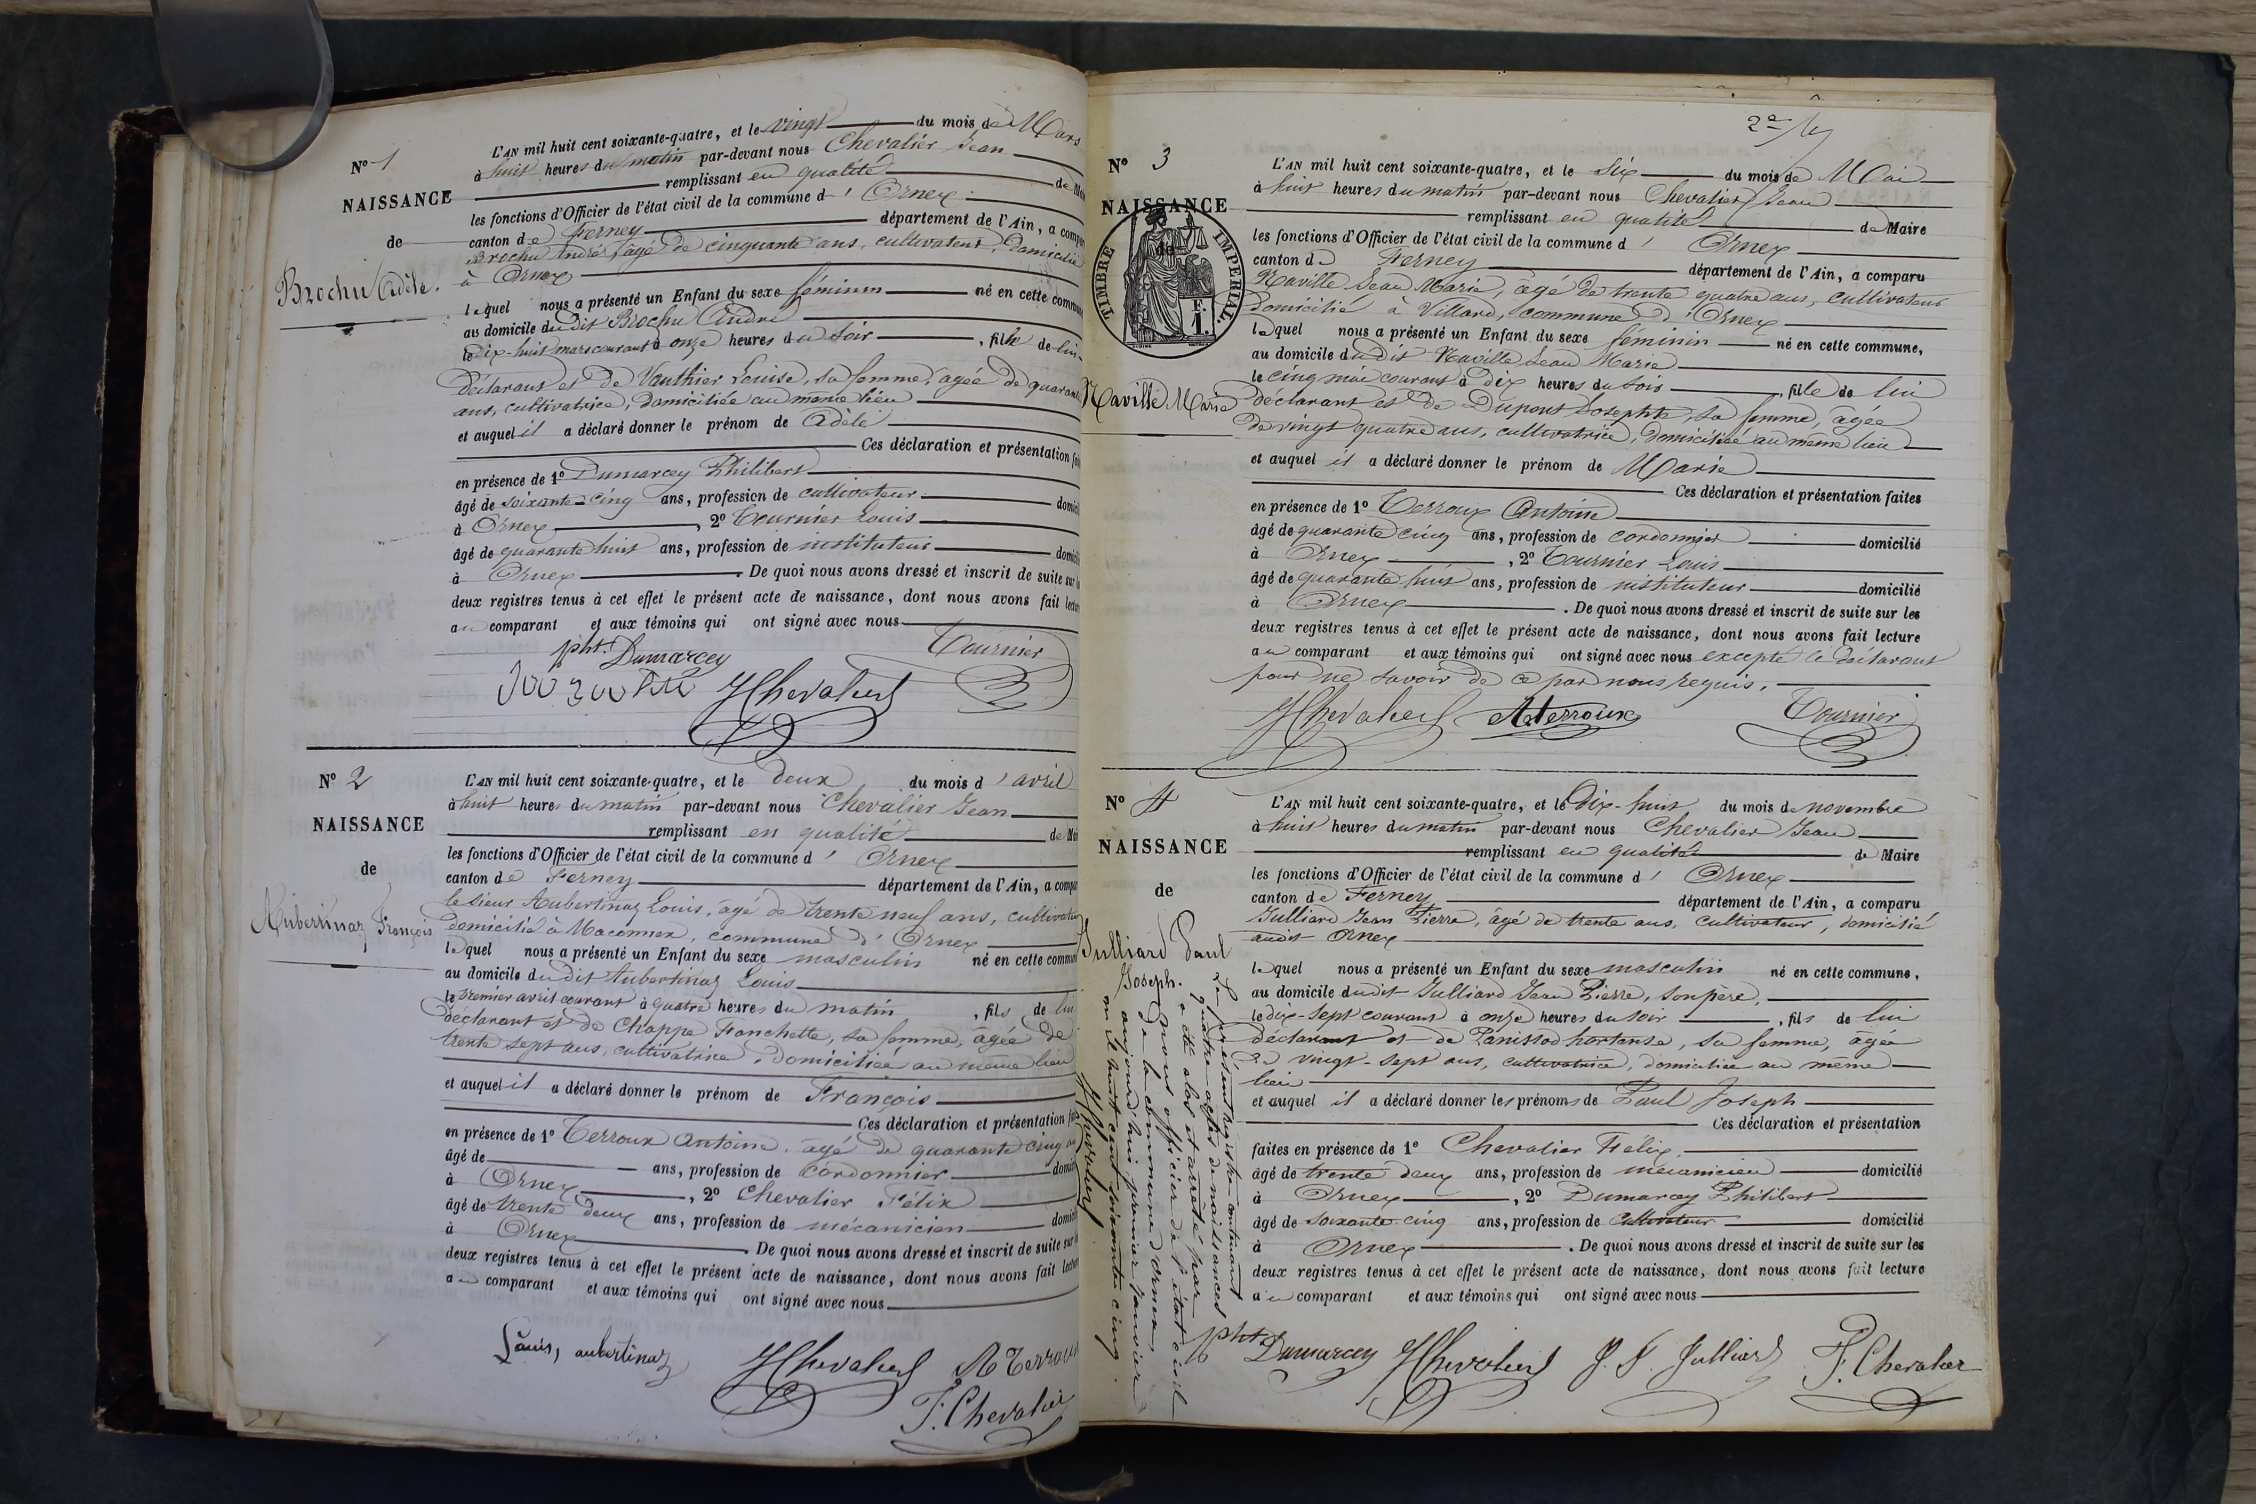 N° 1
NAISSANCE
de
Brochu Adèle.
L'AN mil huit cent soixante-quatre, et le vingt du mois de Mars
à huit heures du matin par-devant nous Chevalier Jean
remplissant en qualité de Mai
les fonctions d'Officier de l'état civil de la commune d' Ornex
canton de Ferney département de l'Ain, a compa
Brochu André, âgé de cinquante ans, cultivateur, domicilié
à Ornex
lequel nous a présenté un Enfant du sexe féminin né en cette commune
au domicile dudit Brochu André
le dix-huit mars courant à onze heures du soir, fille de lui
déclarant et de Vauthier Louise, sa femme, agée de quarante
ans, cultivatrice, domiciliée au même lieu
et auquel il a déclaré donner le prénom de Adèle
Ces déclaration et présentation fai
en présence de 1° Dumarcey Philibert
âgé de soixante-cinq ans, profession de cultivateur domicil
à Ornex, 2° Tournier Louis
âgé de quarante huit ans, profession de instituteur domicil
à Ornex. De quoi nous avons dressé et inscrit de suite sur l
deux registres tenus à cet effet le présent acte de naissance, dont nous avons fait lectu
au comparant et aux témoins qui ont signé avec nous
pht. Dumarcey Tournier
JChevalier
N° 2
NAISSANCE
de
Aubertinaz François
L'AN mil huit cent soixante-quatre, et le deux du mois d'avril
à huit heures du matin par-devant nous Chevalier Jean
remplissant en qualité de Mai
les fonctions d'Officier de l'état civil de la commune d' Ornex
canton de Ferney département de l'Ain, a compa
le sieur Aubertinaz Louis, âgé de trente neuf ans, cultivateur
domicilié à Maconnex, commune d'Ornex
lequel nous a présenté un Enfant du sexe masculin né en cette commun
au domicile dudit Aubertinaz Louis
le premier avril courant à quatre heures du matin, fils de lui
déclarant et de Chappe Franchette, sa femme, âgée de
trente sept ans, cultivatrice, domiciliée au même lieu
et auquel il a déclaré donner le prénom de François
Ces déclaration et présentation fai
en présence de 1° Terroux Antoine, âgé de quarante cinq an
âgé de ans, profession de cordonnier domici
à Ornex, 2° Chevalier Félix
âgé de trente deux ans, profession de mécanicien domicil
à Ornex. De quoi nous avons dressé et inscrit de suite sur l
deux registres tenus à cet effet le présent acte de naissance, dont nous avons fait lectur
au comparant et aux témoins qui ont signé avec nous
Louis, aubertinaz JChevalier A Terroux
F. Chevalier
N° 3
NAISSANCE
de
TIMBRE IMPERIAL.
F.
1.
Naville Marie
L'AN mil huit cent soixante-quatre, et le six du mois de Mai
à huit heures du matin par-devant nous Chevalier Jean
remplissant en qualité de Maire
les fonctions d'Officier de l'état civil de la commune d' Ornex
canton de Ferney département de l'Ain, a comparu
Naville Jean Marie, âgé de trente quatre ans, cultivateur
domicilié à Villard, commune d'Ornex
lequel nous a présenté un Enfant du sexe féminin né en cette commune,
au domicile dudit Naville Jean Marie
le cinq mai courant à dix heures du soir, fille de lui
déclarant et de Dupont Josephte, sa femme, âgée
de vingt quatre ans, cultivatrice, domiciliée au même lieu
et auquel il a déclaré donner le prénom de Marie
Ces déclaration et présentation faites
en présence de 1° Terroux Antoine
âgé de quarante cinq ans, profession de cordonnier domicilié
à Ornex, 2° Tournier Louis
âgé de quarante huit ans, profession de instituteur domicilié
à Ornex. De quoi nous avons dressé et inscrit de suite sur les
deux registres tenus à cet effet le présent acte de naissance, dont nous avons fait lecture
au comparant et aux témoins qui ont signé avec nous excepté le déclarant
pour ne savoir de ce par nous requis.
JChevalier A Terroux Tournier
N° 4
NAISSANCE
de
Julliard Paul
Joseph.
L'AN mil huit cent soixante-quatre, et le Dix-huit du mois de novembre
à huit heures du matin par-devant nous Chevalier Jean
remplissant en qualité de Maire
les fonctions d'Officier de l'état civil de la commune d' Ornex
canton de Ferney département de l'Ain, a comparu
Julliard Jean Pierre, âgé de trente ans, cultivateur, domicilié
audit Ornex
lequel nous a présenté un Enfant du sexe masculin né en cette commune,
au domicile dudit Julliard Jean Pierre, son père,
le dix-sept courant à onze heures du soir, fils de lui
déclarant et de Panissod hortense, sa femme, âgée
de vingt-sept ans, cultivatrice, domiciliée au même
lieu
et auquel il a déclaré donner les prénoms de Paul Joseph
Ces déclaration et présentation
faites en présence de 1° Chevalier Félix
âgé de trente deux ans, profession de mécanicien domicilié
à Ornex, 2° Dumarcey Philibert
âgé de soixante-cinq ans, profession de cultivateur domicilié
à Ornex. De quoi nous avons dressé et inscrit de suite sur les
deux registres tenus à cet effet le présent acte de naissance, dont nous avons fait lecture
au comparant et aux témoins qui ont signé avec nous
pht. Dumarcey JChevalier J. P. Julliard F. Chevalier
Le présent registre contenant
quatre actes de naissances
a été clos et arrêté par
nous officier de l'état civil
de la commune d'ornex
aujourd'hui premier janvier
mil huit cent soixante cinq.
JChevalier